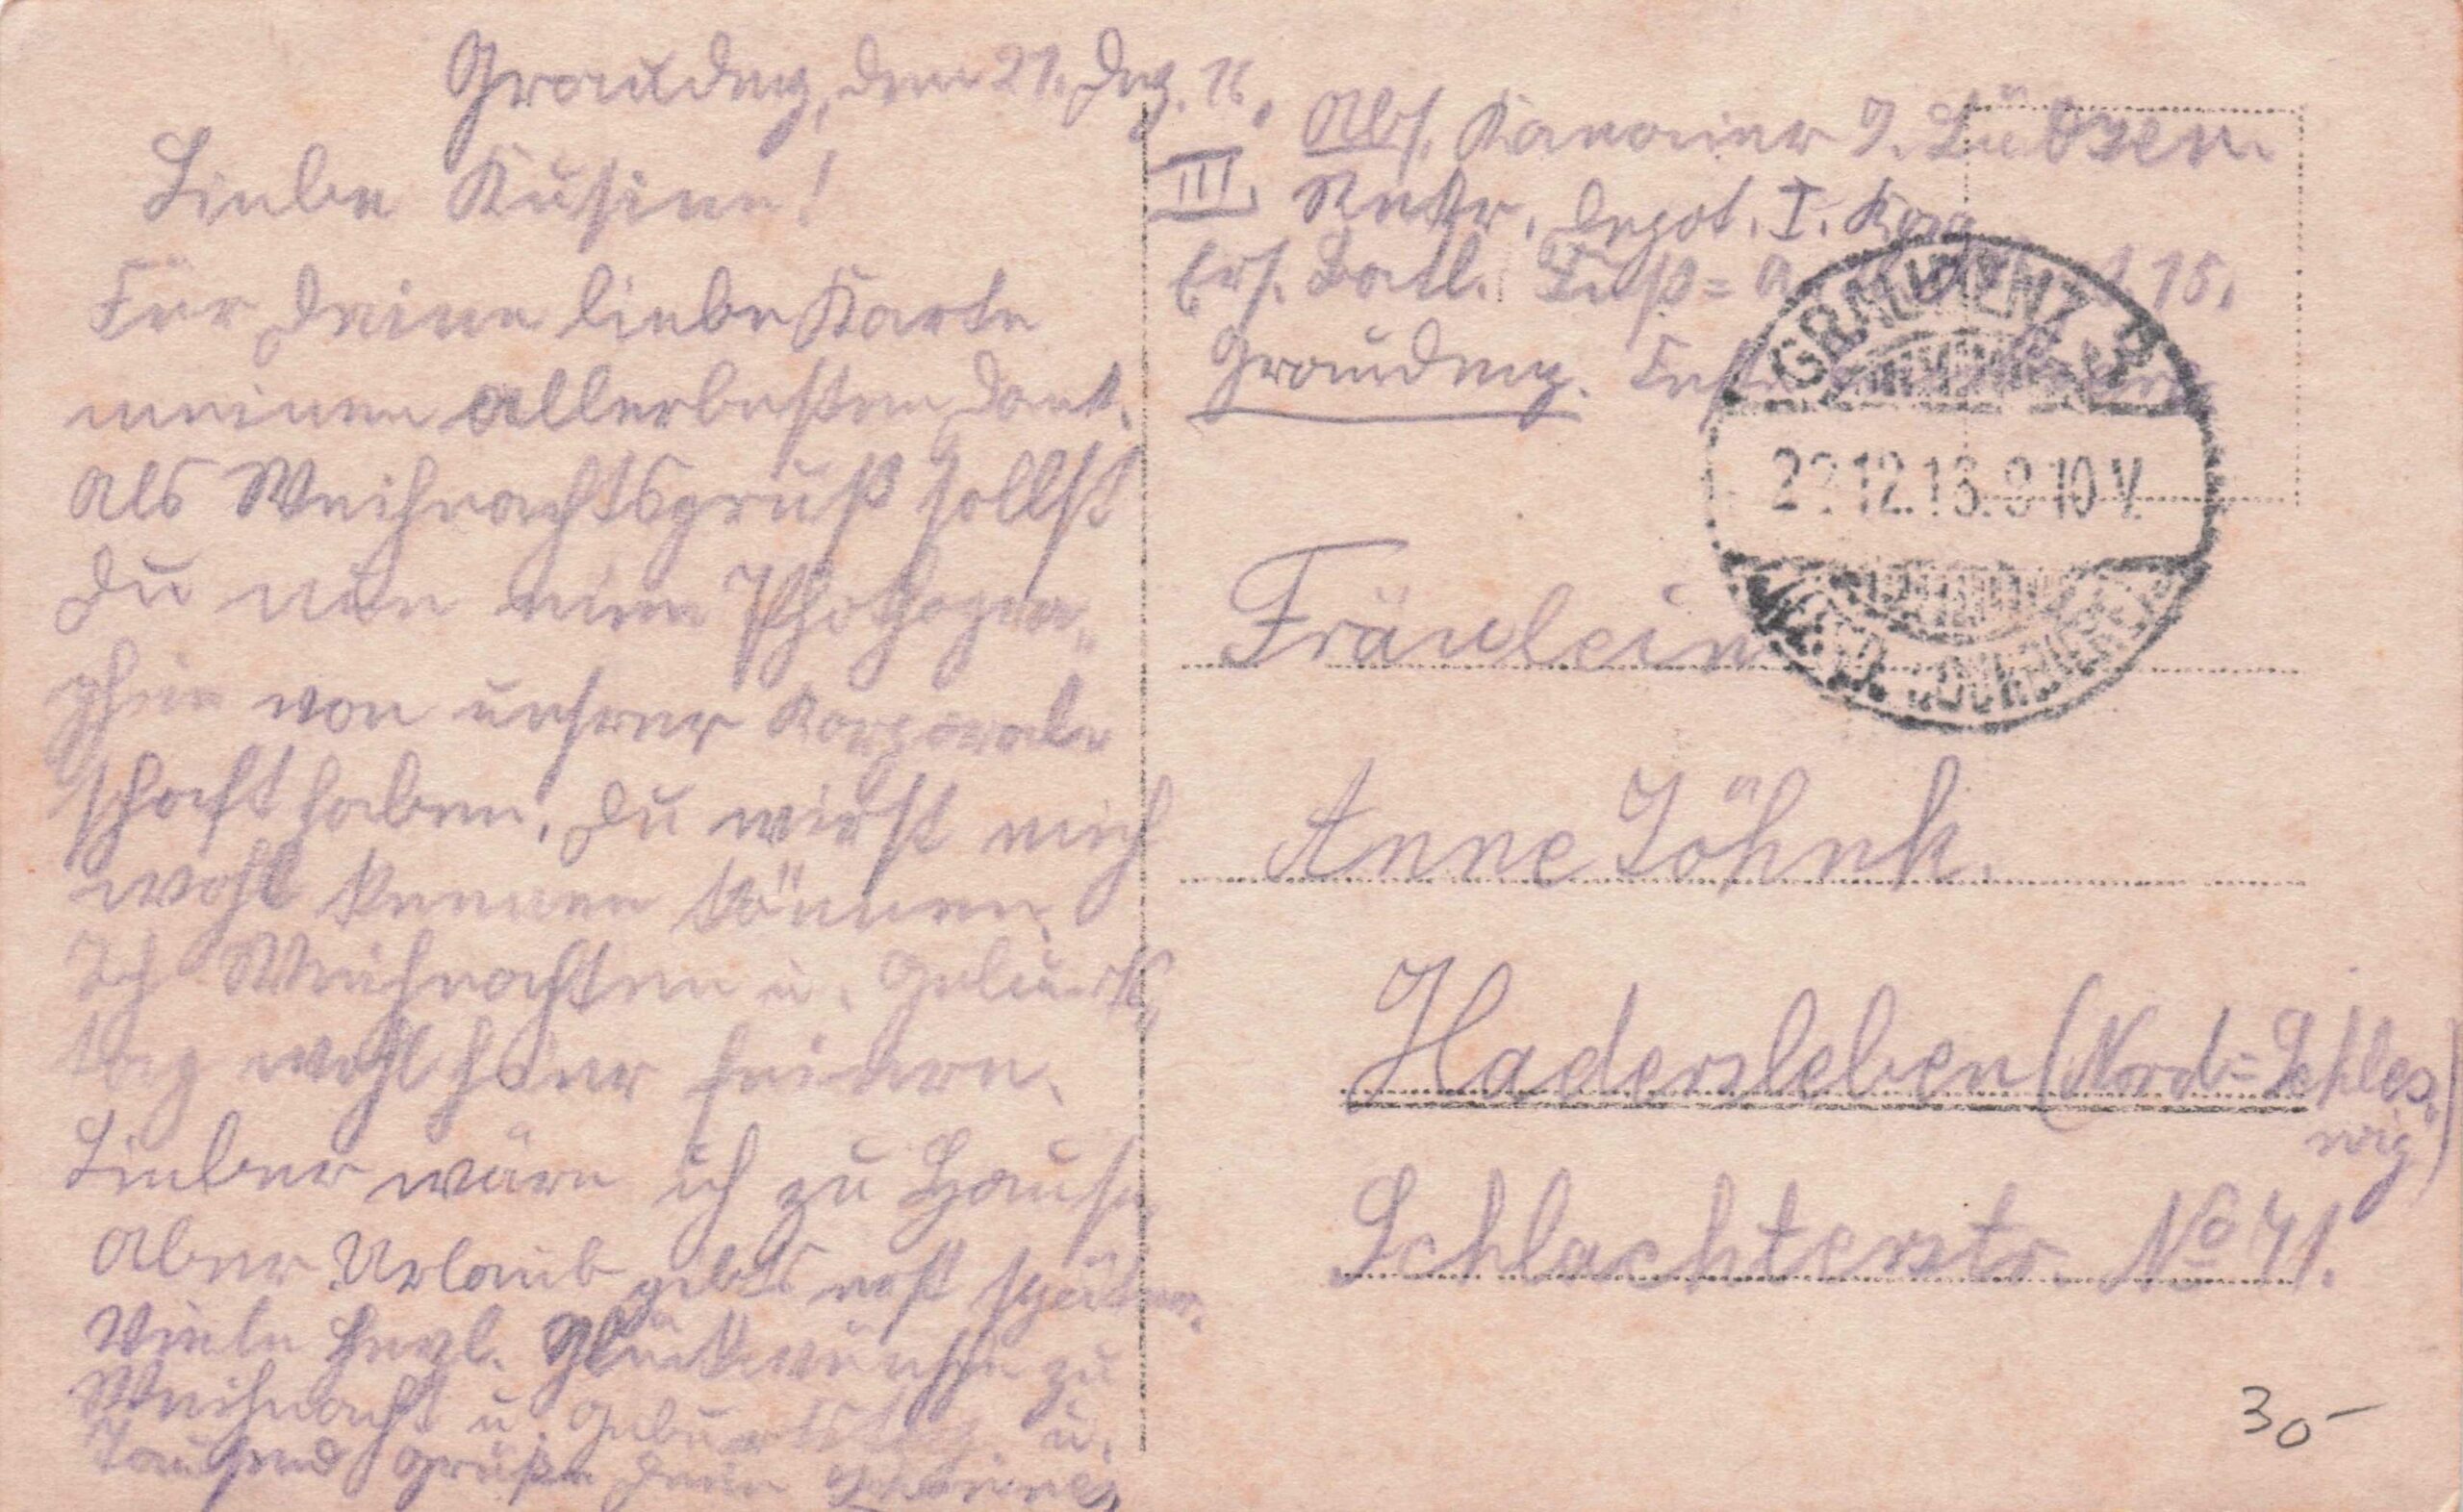 Graudenz, den 21. Dez. 16.
Liebe Kusine!
Für Deine liebe Karte
meinen allerbesten Dank.
Als Weihnachtsgruß sollst
Du nun eine Photogra„
phie von unserer Korporal„
schaft haben. Du wirst mich
wohl kennen können.
Ich Weihnachten u. Geburts„
tag wohl hier feiern.
Lieber wäre ich zu Hause,
aber Urlaub gibts erst später.
Viele herzl. Glückwünsche zu
Weihnacht u. Geburtstag. u.
Tausend Grüße Dein
Abs. Kanonier J. Lübsen.
III. Rekr. Depot. I. Korp
Ers. Batl. Fuß=A 15.
Graudenz.
GRAUDENZ
12.16. 9-10 V.
Fräulein
Anne Jöhnk.
Hadersleben (Nord=Schles„
wig)
Schlachterstr. No 41.
30-